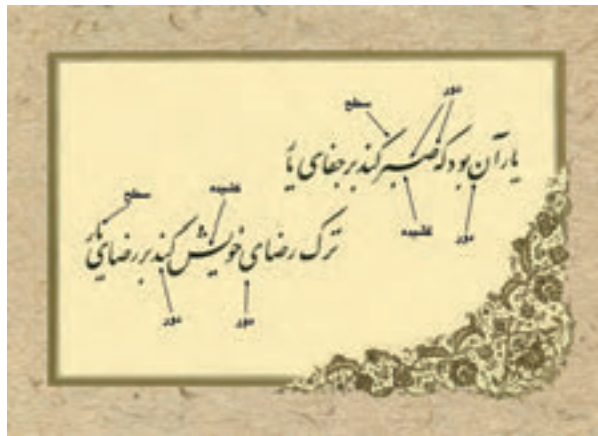 سطح
دور
یار آن بود که صبر کند بر جفای یار
کشیده
دور
سطح
کشیده
ترک رضای خویش کند بر رضای یار
دور
دور